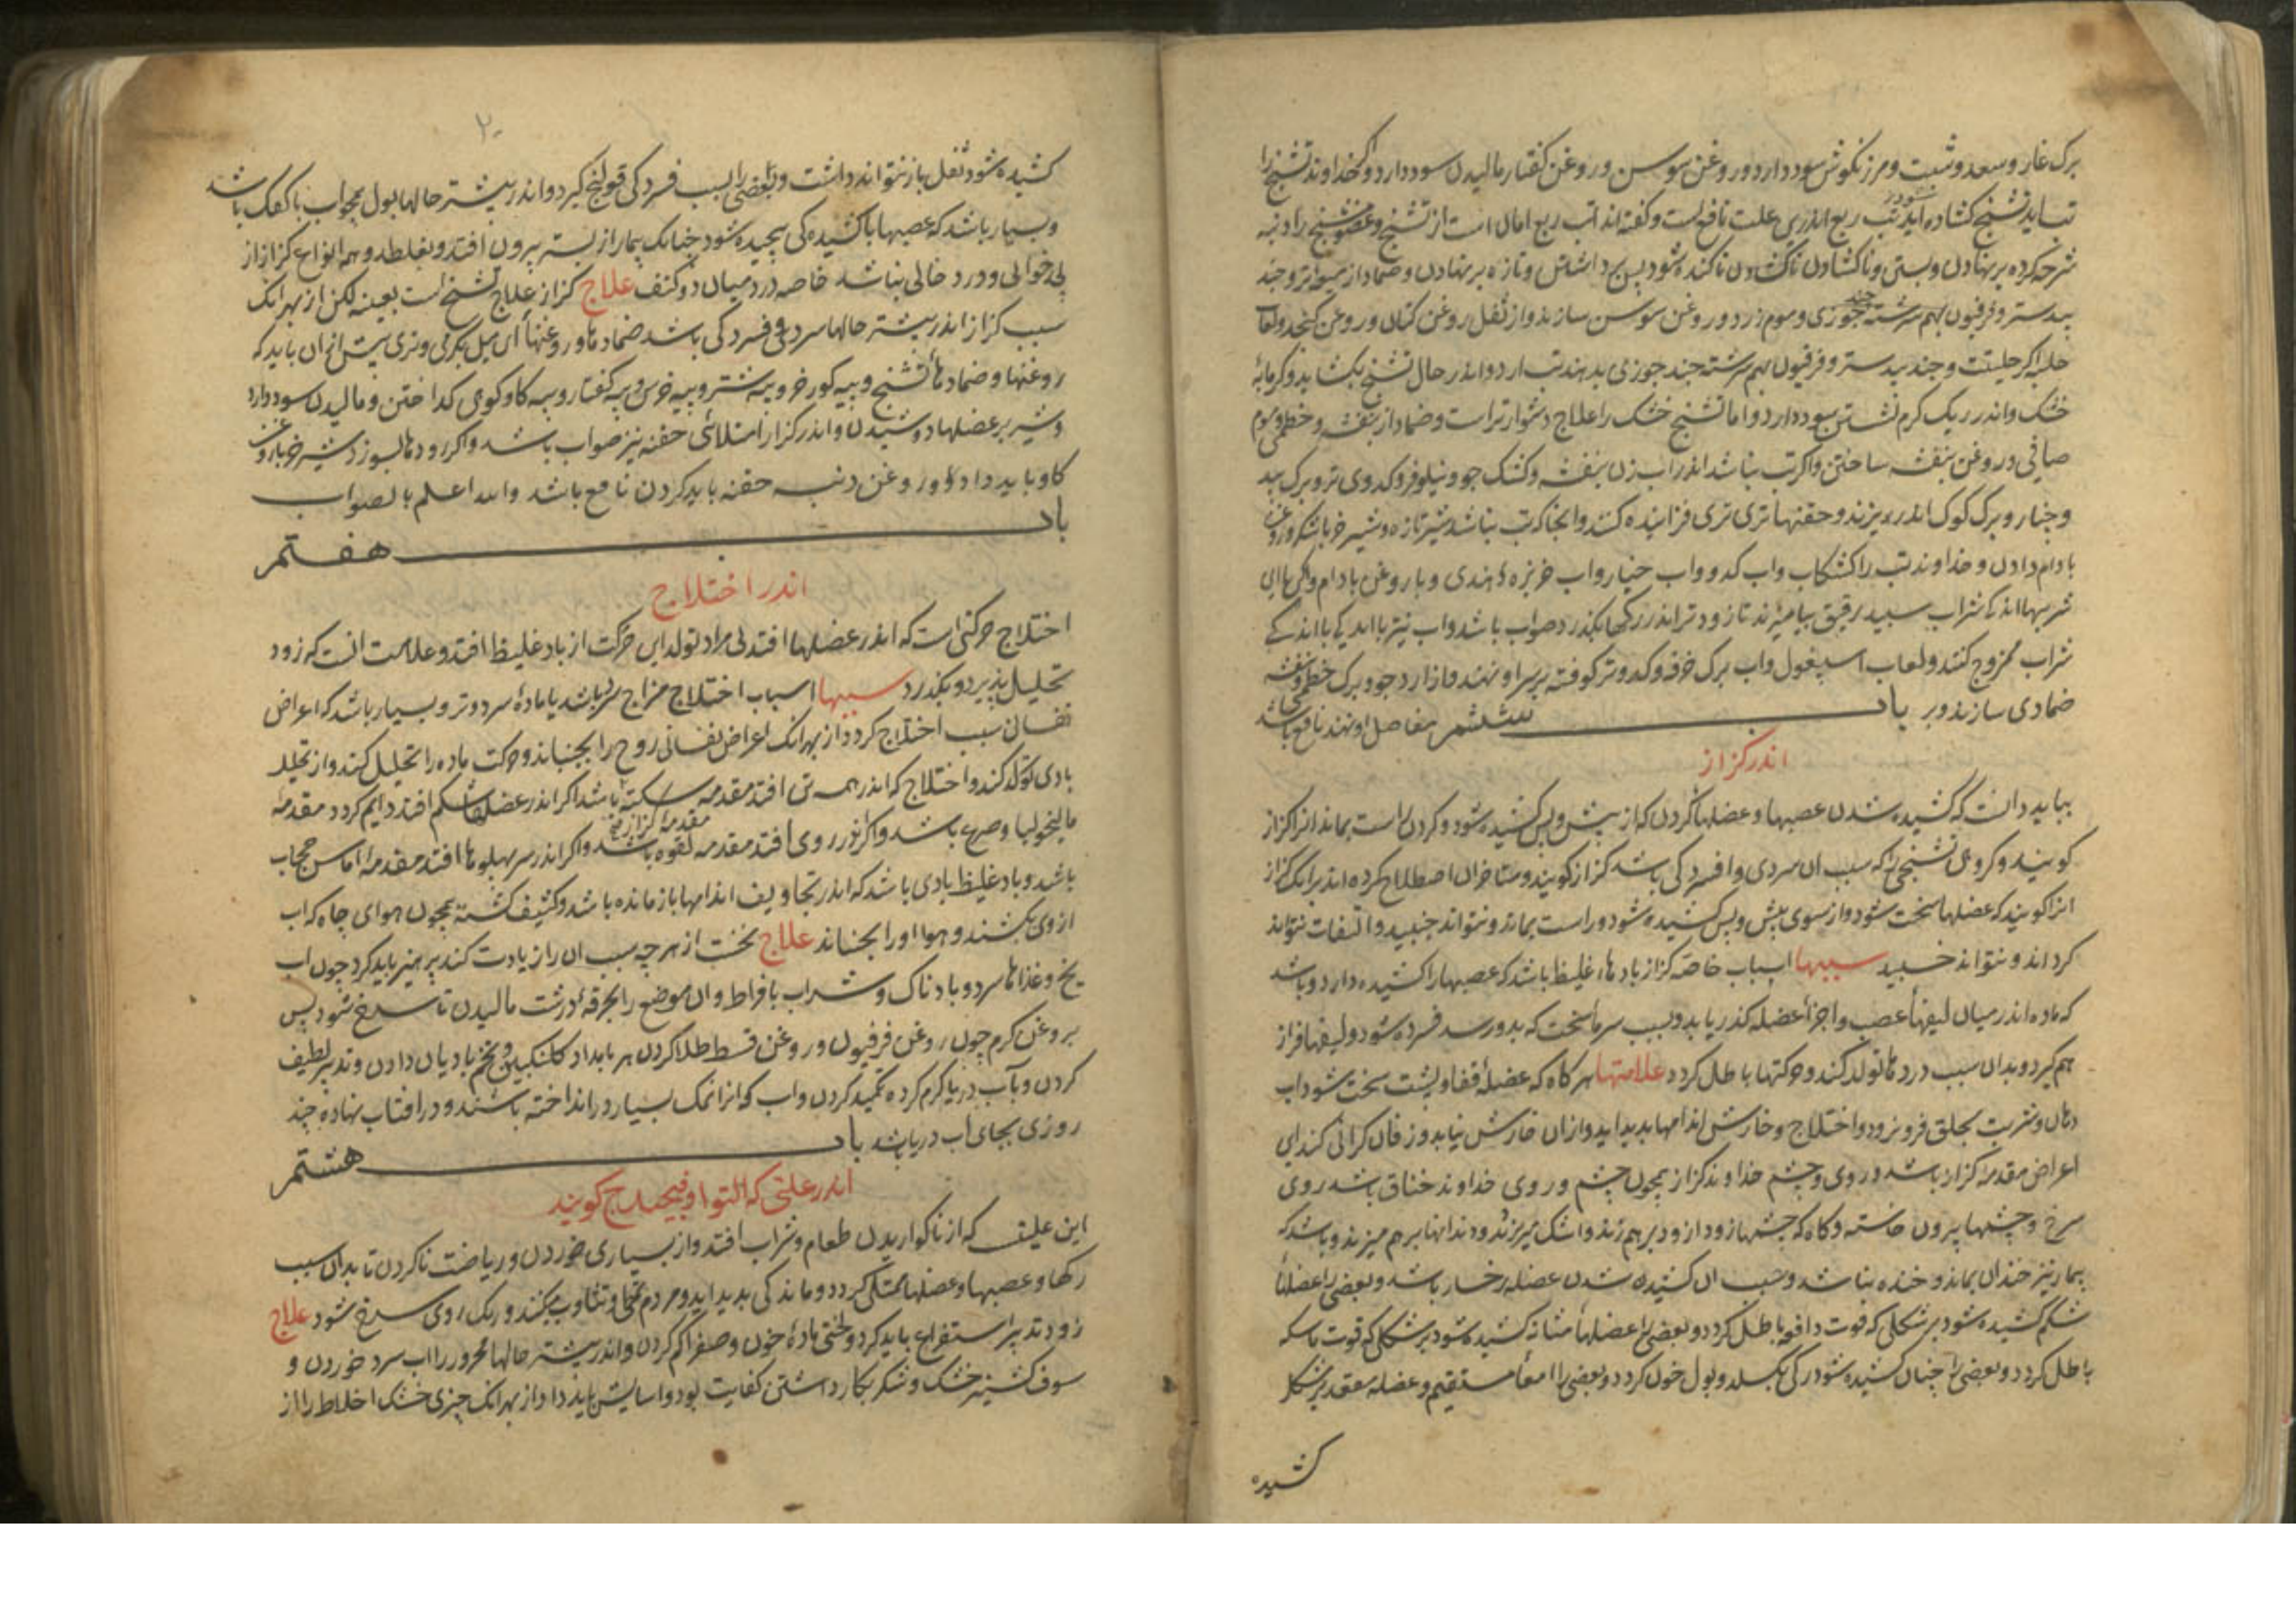 برک غار و سعد و شبت و مرزنکوش سود دارد و روغن سوسن و روغن کفتار مالیدن سود دارد و خداوند تشنج را
تب اید تشنج کشاده شود تب ربع اندرین علت نافع است و کفته اند تب ربع امان است از تشنج و عضو متشنج را دنبه
شرحه کرده بر نهادن و بستن و ناکشادن تا کنده شود پس برداشتن و تازه بر نهادن و ضماد از میعه تر و جند
بیدستر و فرفیون بهم سرشته چند جوزی و موم زرد و روغن سوسن سازند و از ثفل روغن کتان و روغن کنجد و لعاب
حلبه اکر حلتیت و جند بیدستر و فرفیون بهم سرشته چند جوزی بدهند تب ارد و اندر حال تشنج بکشاید و کرمابهٔ
خشک و اندر ریک کرم نشستن سود دارد و اما تشنج خشک را علاج دشوارتر است و ضماد از بنفشه و خطمی و موم
صافی و روغن بنفشه ساختن و اکر تب نباشد اندر اب زن بنفشه و کشک جو و نیلوفر و کدوی تر و برک بید
و خیار و برک کوک اندر ریزند و حقنها تری فزاینده کنند و انجا که تب نباشد شیر تازه و شیر خر با شکر و روغن
بادام دادن و خداوند تب را کشکاب و اب کدو و اب خیار و اب خربزهٔ هندی و با روغن بادام و اکر با این
شربتها اندکی شراب سپید رقیق بیامیزند تا زودتر اندر رکها بکذرد صواب باشد و اب نیز با اندکی
شراب ممزوج کنند و لعاب اسپغول و اب برک خرفه و کدو تر کوفته بر سر او نهند و از ارد جو و برک خطمی و بنفشه
ضمادی سازند و بر مفاصل او نهند نافع باشد باب ششم
اندر کزاز
بباید دانست که کشیده شدن عصبها و عضلهاٴ کردن که از پیش و پس کشیده شود و کردن راست بماند انرا کزاز
کویند و کروهی تشنجی را که سبب ان سردی و افسردکی باشد کزاز کویند و متاخران اصطلاح کرده اند بر انک کزاز
انرا کویند که عضلها سخت شود و از سوی پیش و پس کشیده شود و راست بماند و نتواند جنبید و التفات نتواند
کرد اند و نتواند خسبید سببها اسباب خاصهٔ کزاز بادهاء غلیظ باشد که عصبها را کشیده دارد و باشد
که ماده اندر میان لیفهاٴ عصب و اجزاٴ عضله کذر یابد و بسبب سرماٴ سخت که بدو رسد فسرده شود و لیفها فراز
هم کیرد و بدان سبب دردها تولد کند و حرکتها باطل کردد علامتها هر کاه که عضلهٔ قفا و پشت سخت شود اب
دهان و شربت بحلق فرو نرود و اختلاج و خارش اندامها بدید اید و از ان خارش نیابد و زفان کرانی کند این
اعراض مقدمهٔ کزاز باشد و روی و چشم خداوند کزاز همچون چشم و روی خداوند خناق باشد روی
سرخ و چشمها بیرون خاسته و کاه که چشمها زود از زود بر هم زند و اشک میریزد و دندانها بر هم میزند و باشد که
بیمار نیز خندان بماند و خنده نباشد و سبب ان کشیده شدن عضلهٔ رخسار باشد و بعضی را عضلهاٴ
شکم کشیده شود بر شکلی که قوت دافعه باطل کردد و بعضی را عضلهاٴ مثانه کشیده شود بر شکلی که قوت ماسکه
باطل کردد و بعضی را چنان کشیده شود رکی بکسلد و بول خون کردد و بعضی را امعاٴ مستقیم و عضله مقعد بر شکل
کشیده
۲۰
کشیده شود ثفل باز نتواند داشت و بعضی را بسبب فسردکی قولنج کیرد و اندر بیشتر حالها بول همچو اب با کفک باشد
و بسیار باشد که عصبها با کشیدکی پیچیده شود چنانک بیمار از بستر بیرون افتد و بغلطد و همه انواع کزاز از
بی خوابی و درد خالی نباشد خاصه درد میان دو کتف علاج کزاز علاج تشنج است بعینه لکن از بهر انک
سبب کزاز اندر بیشتر حالها سردی و فسردکی باشد ضمادها و روغنهاٴ این میل بکرمی و تری بیش از ان باید که
روغنها و ضمادهاٴ تشنج و پیه کور خر و پیه شتر و پیه خرس و پیه کفتار و پیه کاو کوهی کداختن و مالیدن سود دارد
و شیر بر عضلها دوشیدن و اندر کزاز امتلائی حقنه نیز صواب باشد و اکر رودها بسوزد شیر خر با روغن
کاو باید داد و روغن دنبه حقنه باید کردن نافع باشد والله اعلم بالصواب
باب هفتم
اندر اختلاج
اختلاج حرکتی است که اندر عضلها افتد بی مراد تولد این حرکت از باد غلیظ افتد و علامت انست که زود
تحلیل پذیرد و بکذرد سببها اسباب اختلاج مزاج سرد باشد یا مادهٔ سرد و تر و بسیار باشد که اعراض
نفسانی سبب اختلاج کردد از بهر انک اعراض نفسانی روح را بجنباند و حرکت ماده را تحلیل کند و از تحلیل
بادی تولد کند و اختلاج که اندر همه تن افتد مقدمه سکته باشد اکر اندر عضلهاٴ شکم افتد دایم کردد مقدمهٔ
مالیخولیا و صرع باشد و اکر اندر روی افتد مقدمه لقوه باشد و اکر اندر سر پهلوها افتد مقدمهٔ اماس حجاب
باشد و باد غلیظ بادی باشد که اندر تجاویف اندامها باز مانده باشد و کثیف کشته همچون هوای چاه که اب
از وی بکشند و هوا او را بجنباند علاج نخست از هر چه سبب ان را زیادت کند پرهیز باید کرد چون اب
یخ و غذاها سرد و بادناک و شراب بافراط و ان موضع را بخرقهٔ درشت مالیدن تا سرخ شود پس
بروغن کرم چون روغن فرفیون و روغن قسط طلا کردن هر بامداد کلنکبین و تخم بادیان دادن و تدبیر لطیف
کردن و باب دریا کرم کرده تکمید کردن و اب که انرا نمک بسیار در انداخته باشند و در افتاب نهاده چند
روزی بجای اب دریا باشد باب هشتم
اندر علتی که التوا و پیچیدج کویند
این علتیست که از ناکواریدن طعام و شراب افتد و از بسیاری خوردن و ریاضت ناکردن تا بدان سبب
رکها و عصبها و عضلها ممتلی کردد و ماندکی بدید اید و مردم تمطی و تثاوب میکند و رنک روی سرخ شود علاج
زود تدبیر استفراغ باید کرد و لختی مادهٔ خون و صفرا کم کردن و اندر بیشتر حالها محرور را اب سرد خوردن و
سوف کشنیز خشک و شکر بکار داشتن کفایت بود و اسایش باید داد از بهر انک چیزی خشک اخلاط را از